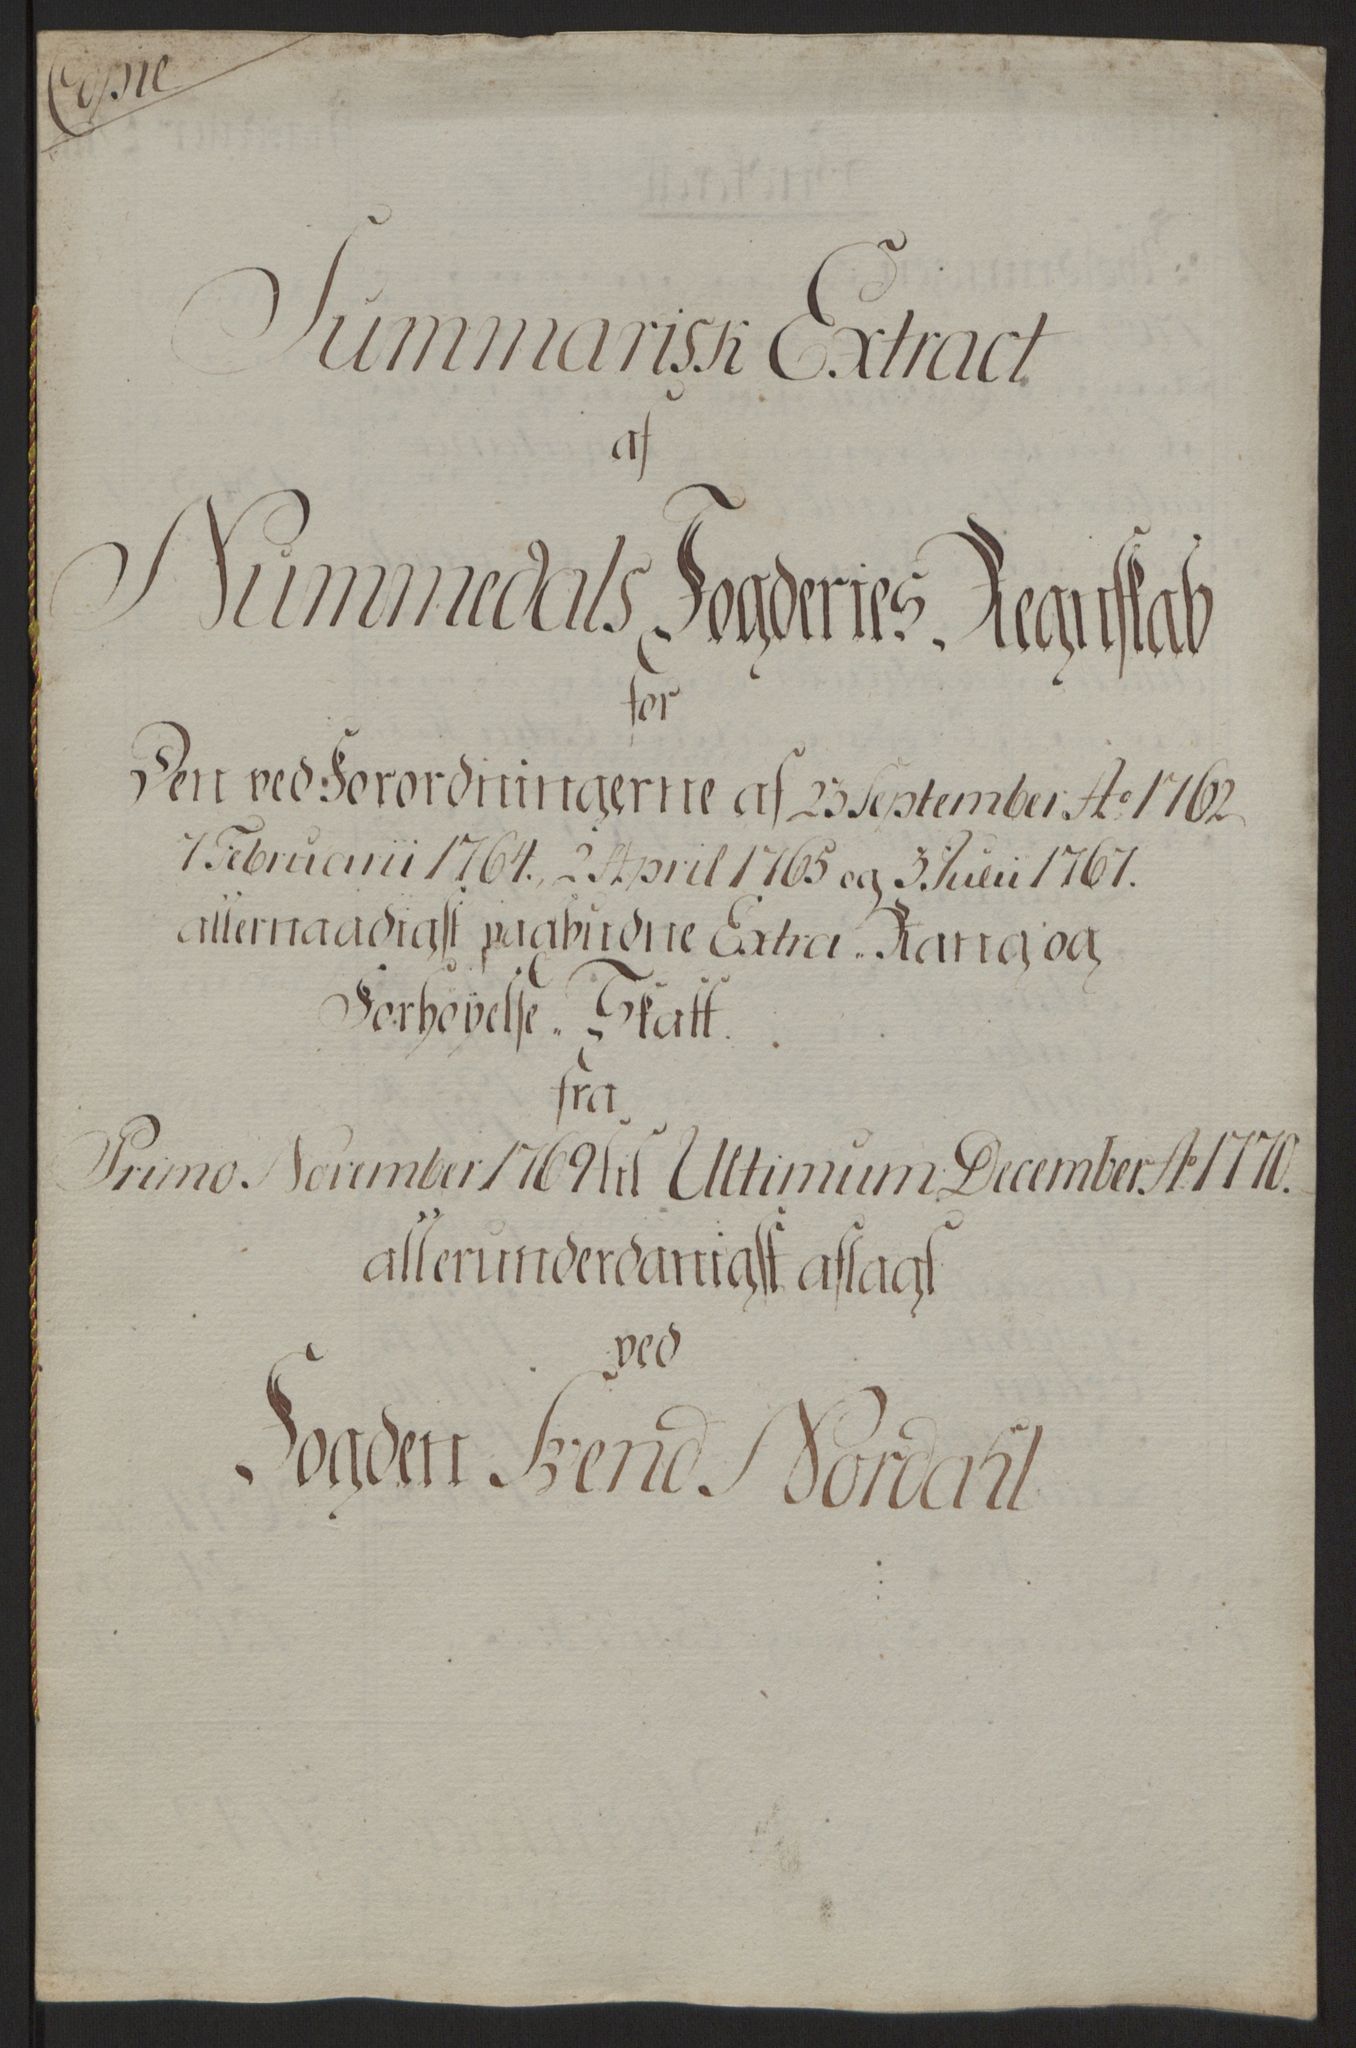 Copie
Summarisk Extract
af
Nummedals Fogderies Regnskab
for
Den ved Forordningerne af 23 September Ao 1762
7 Februarii 1764., 2 April 1765 og 3. Julii 1767.
allernaadigst paabudne Extra- Rang og
Forhøyelse- Skatt.
fra
Primo November 1769 til Ultimum December Ao 1770.
allerunderdanigst aflagt
ved
Fogden Svend Nordahl